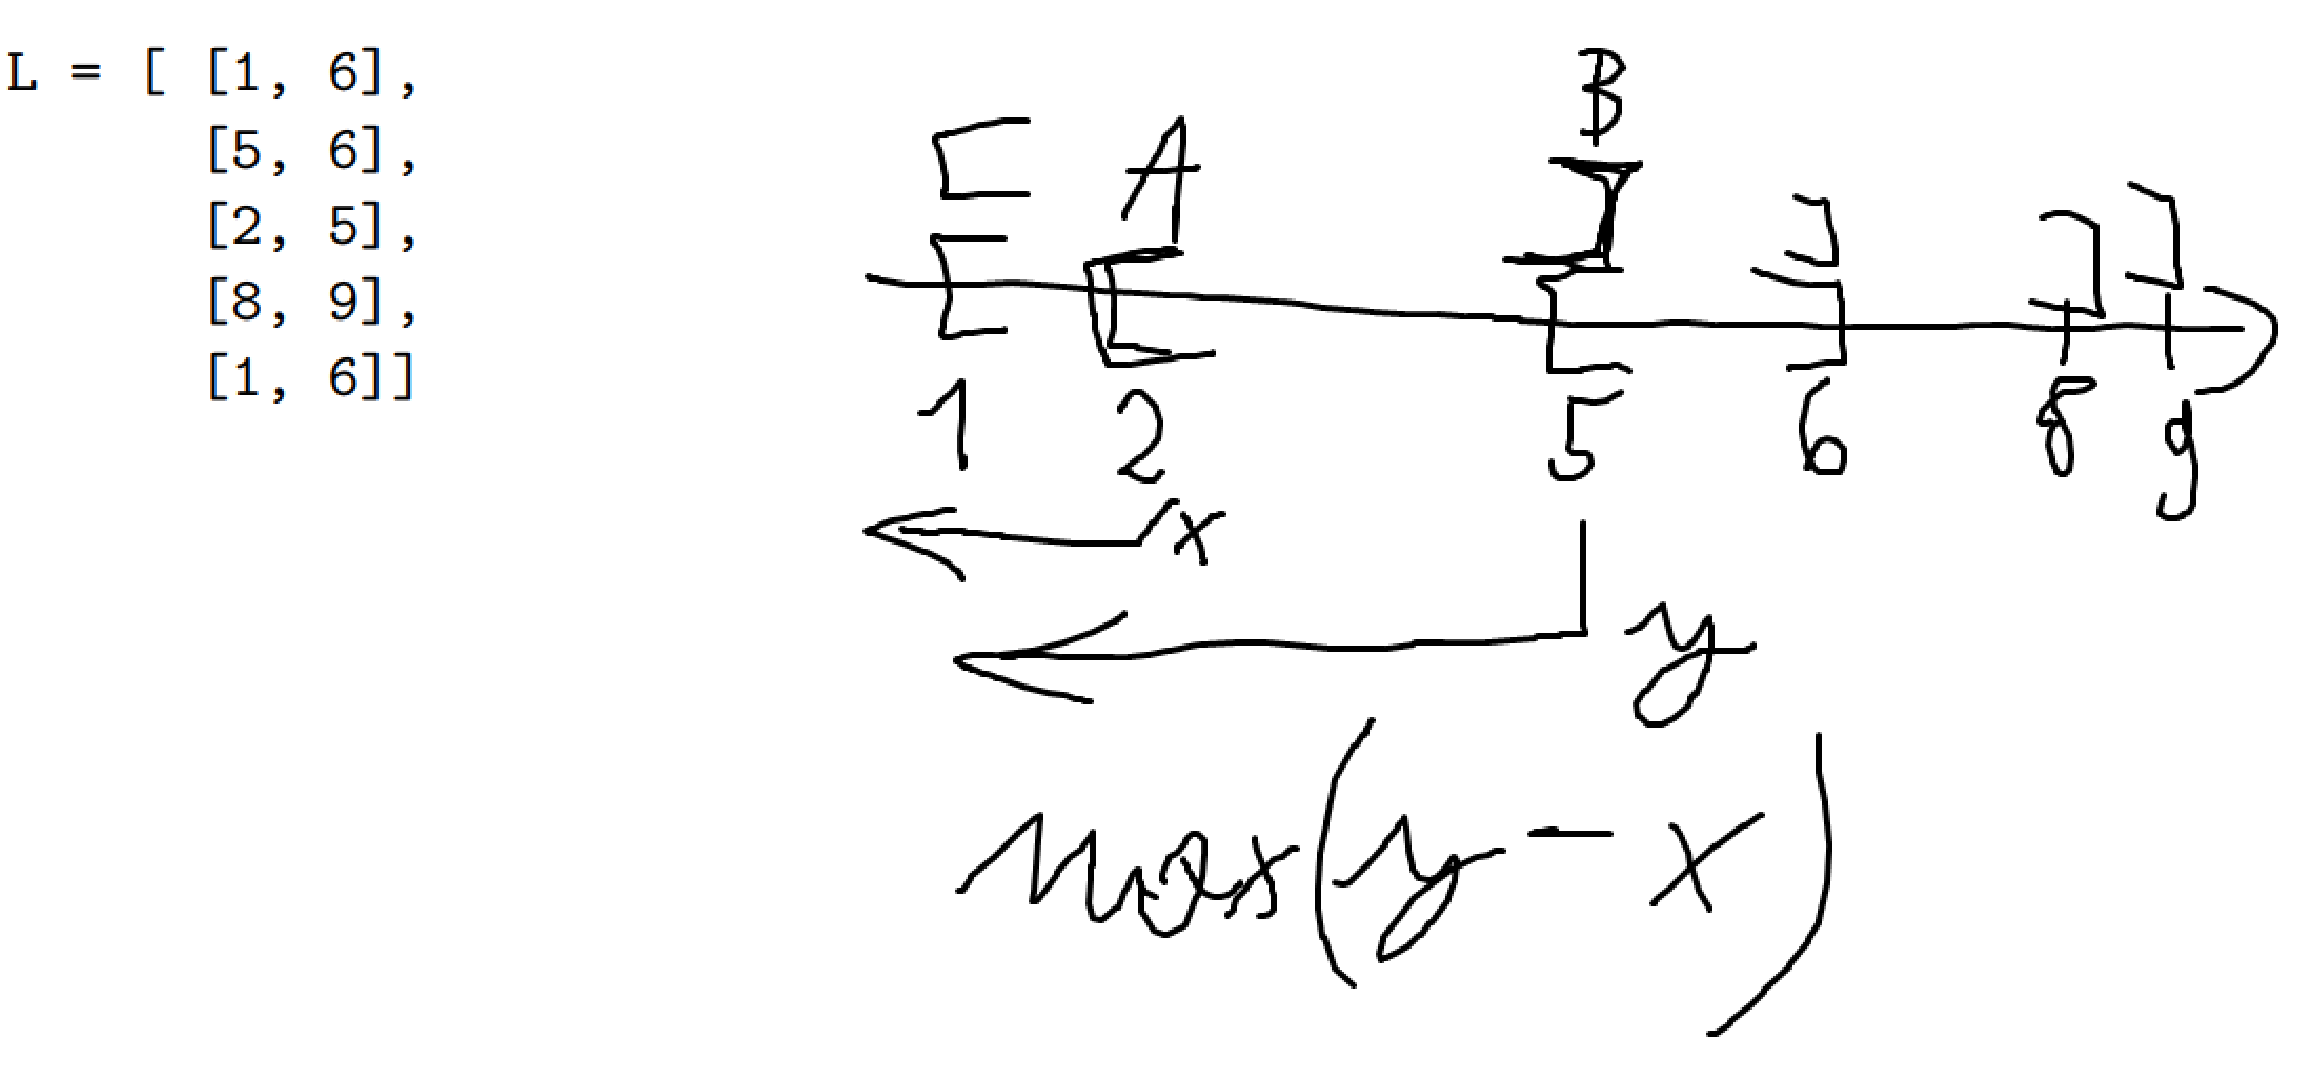 L = [ [1, 6],
[5, 6],
[2, 5],
[8, 9],
[1, 6]]
B
[ A ] ] ] ]
[ [ [ ] )
1 2 5 6 8 9
x
y
max(y - x)